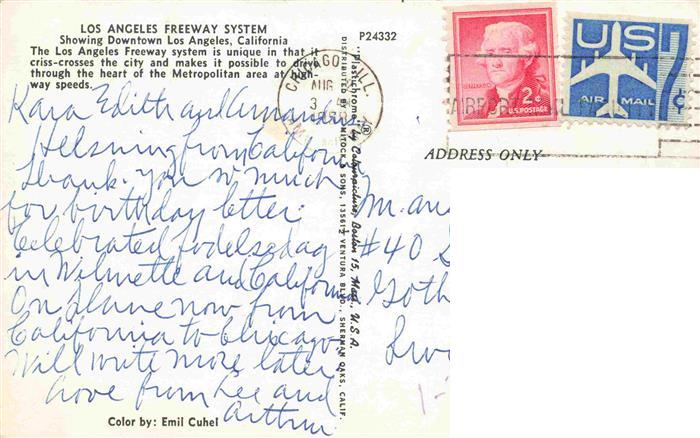 LOS ANGELES FREEWAY SYSTEM
Showing Downtown Los Angeles, California
The Los Angeles Freeway system is unique in that it
criss-crosses the city and makes it possible to drive
through the heart of the Metropolitan area at high-
way speeds.
P24332
Kara Edith and Amandus
Helsning from California
Thank you so much
for birthday letter.
Celebrated fodelsedag
in Wilmette and California
On plane now from
California to Chicago
Will write more later
Love from Lee and
Arthur
Color by: Emil Cuhel
"Plastichrome" ® by Colourpicture, Boston 15, Mass., U.S.A.
DISTRIBUTED BY MITOCK & SONS, 13561½ VENTURA BLVD., SHERMAN OAKS, CALIF.
CHICAGO, ILL.
AUG
3
2¢
U.S. POSTAGE
US
AIR MAIL
7¢
ADDRESS ONLY
Mr. an
#40 S
Goth